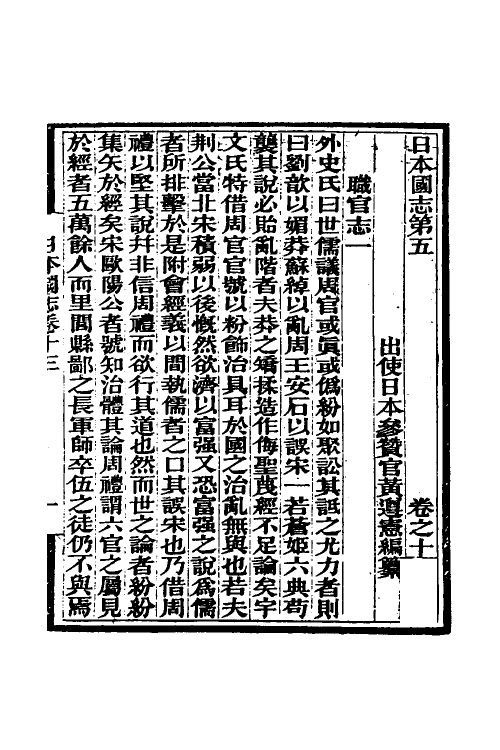 日本國志第五　卷之十
出使日本參贊官黃遵憲編纂
職官志一
外史氏曰世儒議周官或眞或僞紛如聚訟其詆之尤力者則
曰劉歆以媚莽蘇綽以亂周王安石以誤宋一若蒼姬六典苟
襲其說必貽亂階者夫莽之矯揉造作侮聖蔑經不足論矣宇
文氏特借周官官號以粉飾治具耳於國之治亂無與也若夫
荆公當北宋積弱以後慨然欲濟以富强又恐富强之說爲儒
者所排擊於是附會經義以間執儒者之口其誤宋也乃借周
禮以堅其說幷非信周禮而欲行其道也然而世之論者紛紛
集矢於經矣宋歐陽公者號知治體其論周禮謂六官之屬見
於經者五萬餘人而里閭縣鄙之長軍師卒伍之徒仍不與焉
日本國志卷十三
一